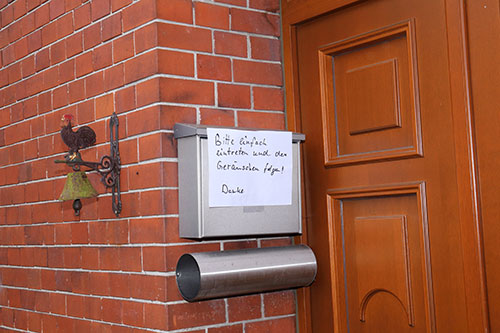 Bitte einfach
eintreten und den
Geräuschen folgen!
Danke